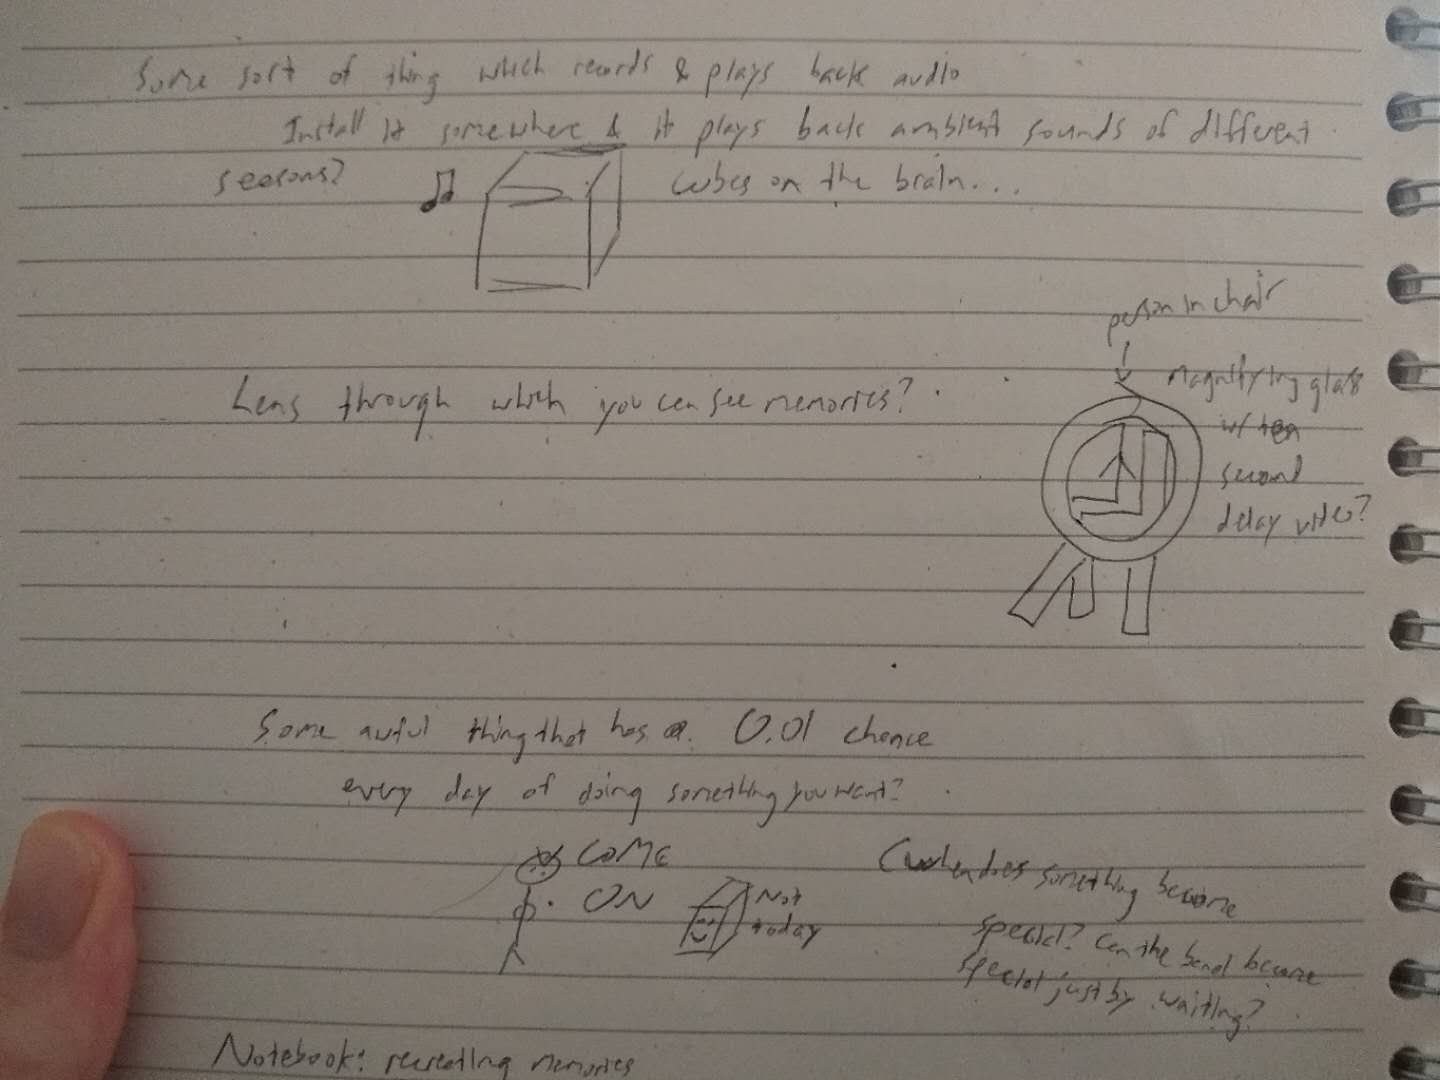 Some sort of thing which records & plays back audio
Install it somewhere & it plays back ambient sounds of different
seasons?
cubes on the brain...
person in chair
Lens through which you can see memories?
magnifying glass
w/ ten
second
delay video?
Some awful thing that has a 0.01 chance
every day of doing something you want?
COME
ON
Not
today
(when does something become
special? Can the banal become
special just by waiting?
Notebook: recreating memories